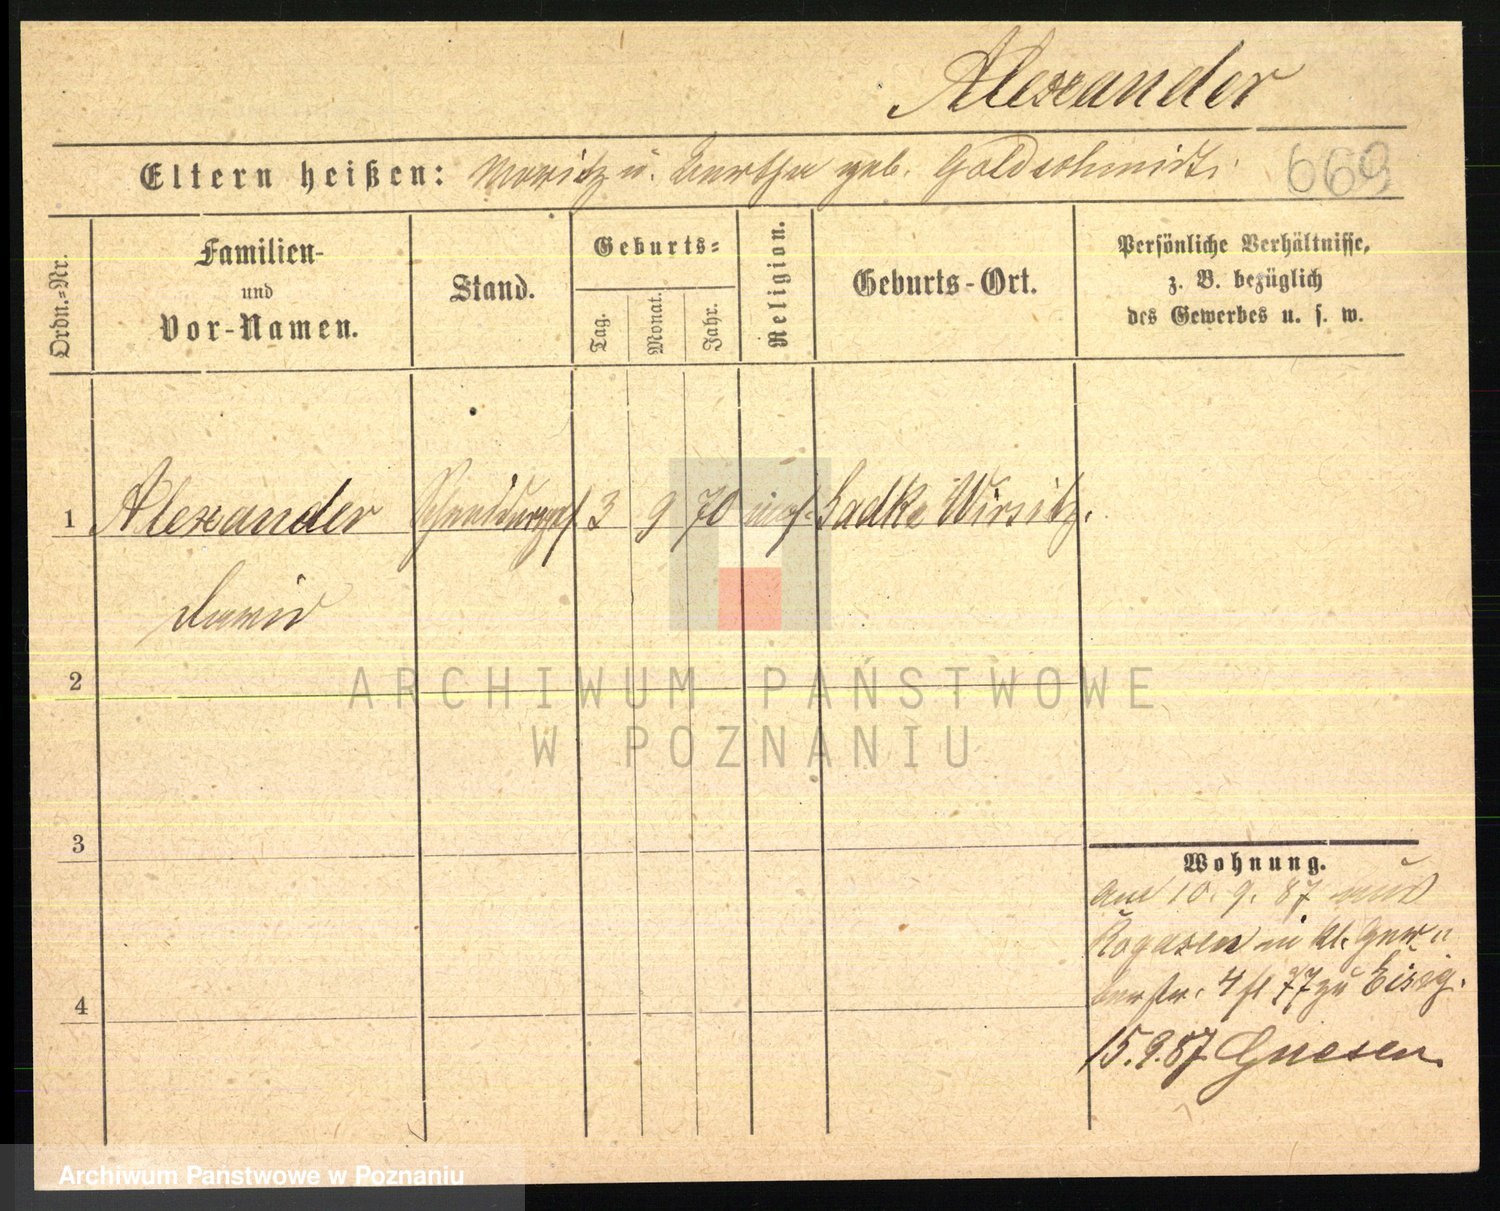 Alexander
Eltern heißen: Moritz u. Bertha geb. Goldschmidt.
669
Ordn.-Nr.
Familien-
und
Vor-Namen.
Stand.
Geburts-
Tag.
Monat.
Jahr.
Religion.
Geburts-Ort.
Persönliche Verhältnisse,
z. B. bezüglich
des Gewerbes u. s. w.
1 Alexander 3 9 70 Sadke Wirsitz.
David
2
3
4
Wohnung.
am 10. 9. 87 aus
Rogasen in kl. Ger-
berstr. 4 77 zu Eisig.
15.9.87 Gnesen
ARCHIWUM PAŃSTWOWE
W POZNANIU
Archiwum Państwowe w Poznaniu